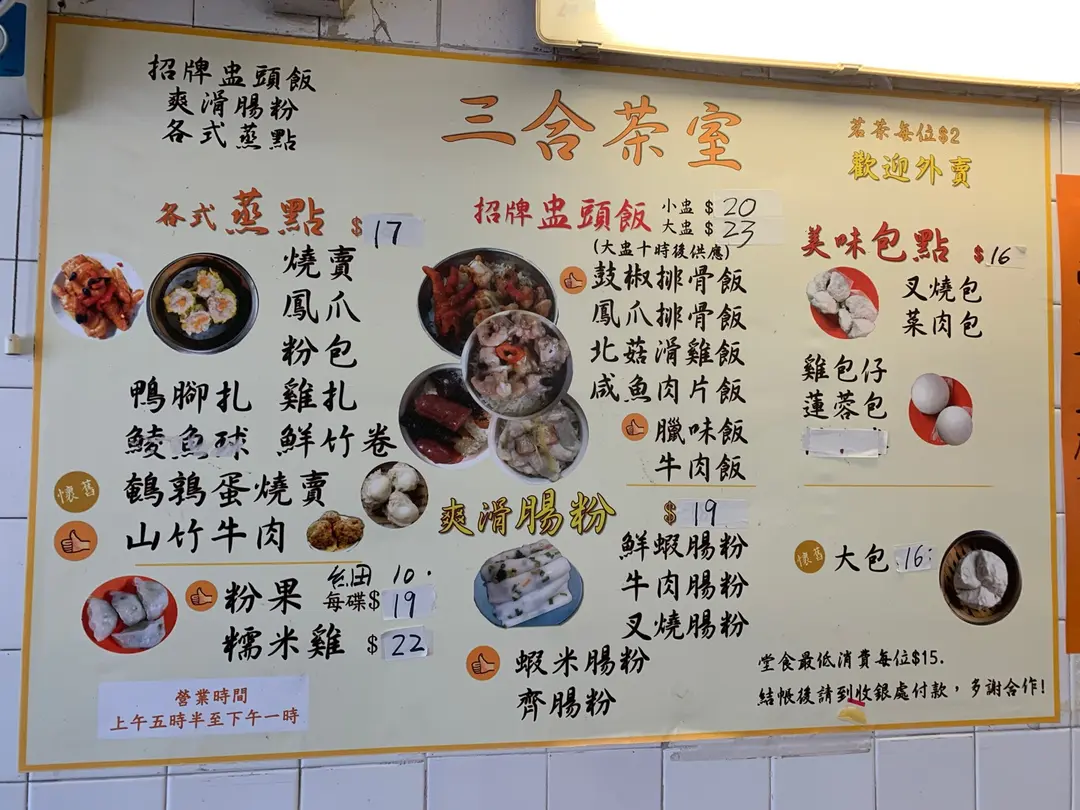 招牌盅頭飯
爽滑腸粉
各式蒸點
三合茶室
茗茶每位$2
歡迎外賣
各式蒸點 $17
燒賣
鳳爪
粉包
鴨腳扎 雞扎
鯪魚球 鮮竹卷
懷舊 鵪鶉蛋燒賣
山竹牛肉
粉果 細 10.
每碟$19
糯米雞 $22
營業時間
上午五時半至下午一時
招牌盅頭飯 小盅 $20
大盅 $23
(大盅十時後供應)
鼓椒排骨飯
鳳爪排骨飯
北菇滑雞飯
咸魚肉片飯
臘味飯
牛肉飯
爽滑腸粉 $19
鮮蝦腸粉
牛肉腸粉
叉燒腸粉
蝦米腸粉
齊腸粉
美味包點 $16
叉燒包
菜肉包
雞包仔
蓮蓉包
懷舊 大包 16
堂食最低消費每位$15.
結帳後請到收銀處付款，多謝合作!